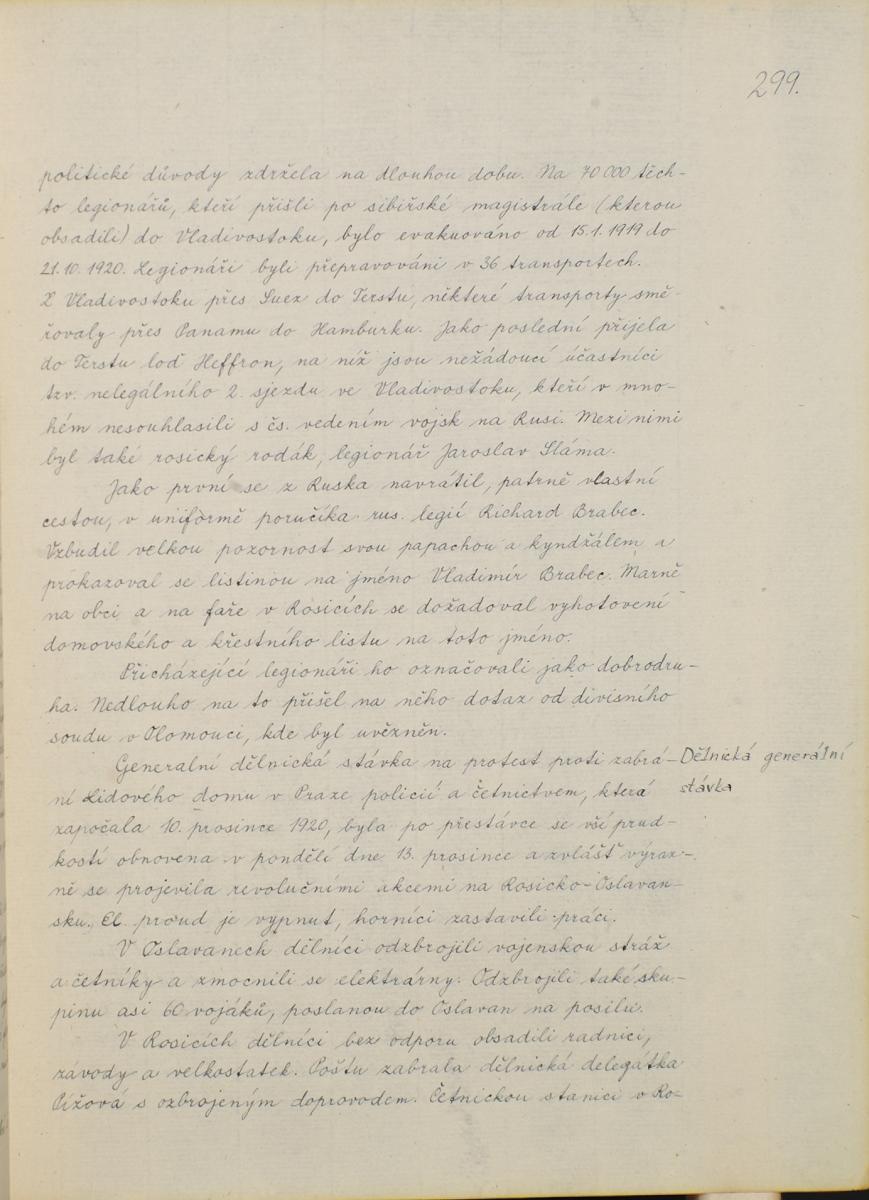 299.
politické důvody zdržela na dlouhou dobu. Na 70 000 těch-
to legionářů, kteří přišli po sibiřské magistrále (kterou
obsadili) do Vladivostoku, bylo evakuováno od 15.1.1919 do
21.10.1920. Legionáři byli přepravováni v 36 transportech.
Z Vladivostoku přes Suez do Terstu, některé transporty smě-
řovaly přes Panamu do Hamburku. Jako poslední přijela
do Terstu loď Heffron, na níž jsou nežádoucí účastníci
tzv. nelegálního 2. sjezdu ve Vladivostoku, kteří v mno-
hém nesouhlasili s čs. vedením vojsk na Rusi. Mezi nimi
byl také rosický rodák, legionář Jaroslav Sláma.
Jako první se z Ruska navrátil, patrně vlastní
cestou, v uniformě poručíka rus. legií Richard Brabec.
Vzbudil velkou pozornost svou papachou a kyndžálem a
prokazoval se listinou na jméno Vladimír Brabec. Marně
na obci a na faře v Rosicích se dožadoval vyhotovení
domovského a křestního listu na toto jméno.
Přicházející legionáři ho označovali jako dobrodru-
ha. Nedlouho na to přišel na něho dotaz od divisního
soudu v Olomouci, kde byl uvězněn.
Generalní dělnická stávka na protest proti zabrá-
ní Lidového domu v Praze policií a četnictvem, která
započala 10. prosince 1920, byla po přestávce se vší prud-
kostí obnovena v pondělí dne 13. prosince a zvlášť výraz-
ně se projevila revolučními akcemi na Rosicko-Oslavan-
sku. El. proud je vypnut, horníci zastavili práci.
V Oslavanech dělníci odzbrojili vojenskou stráž
a četníky a zmocnili se elektrárny. Odzbrojili také sku-
pinu asi 60 vojáků, poslanou do Oslavan na posilu.
V Rosicích dělníci bez odporu obsadili radnici,
závody a velkostatek. Poštu zabrala dělnická delegátka
Pížová s ozbrojeným doprovodem. Četnickou stanici v Ro-
Dělnická generální
stávka